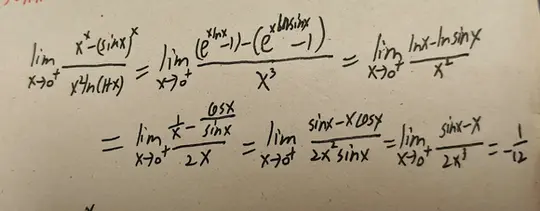 lim x→0⁺ (x^x-(sinx)^x)/(x²ln(1+x)) = lim x→0⁺ ((e^(xlnx)-1)-(e^(xlnsinx)-1))/x³ = lim x→0⁺ (lnx-lnsinx)/x²
= lim x→0⁺ (1/x - cosx/sinx)/2x = lim x→0⁺ (sinx-xcosx)/(2x²sinx) = lim x→0⁺ (sinx-x)/2x³ = -1/12